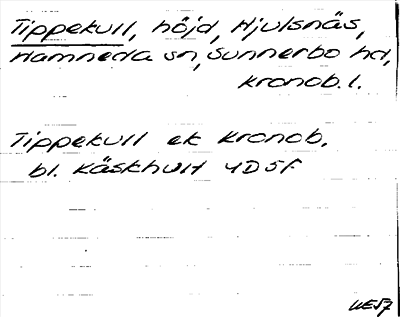 Tippekull, höjd, Hjulsnäs,
Hamneda sn, Sunnerbo hd,
Kronob. l.
Tippekull ek Kronob.
bl. Käskhult 4D5f